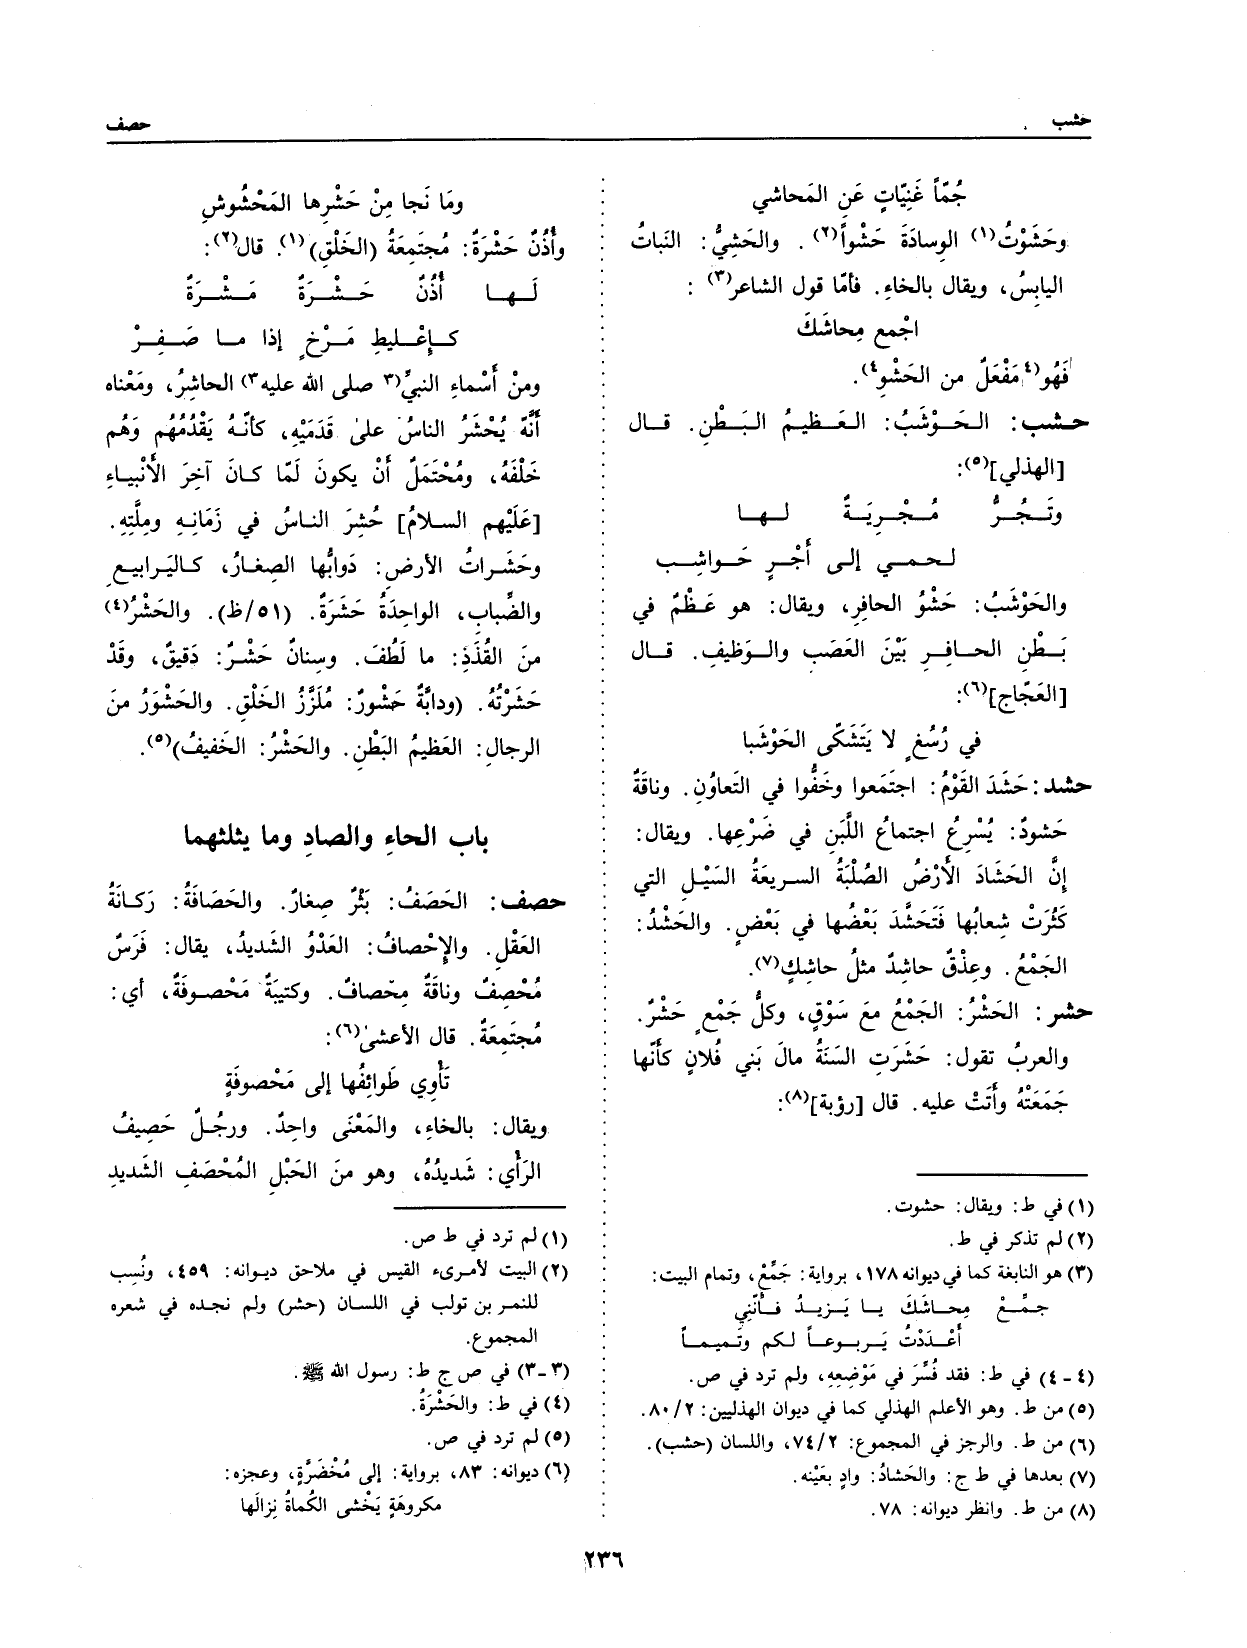 حشب
حصف
جُمّاً غَنِيّاتٍ عَنِ المَحاشي
وحَشَوْتُ(١) الوِسادَةَ حَشْواً(٢). والحَشِيُّ: النَباتُ
اليابِسُ، ويقال بالخاءِ. فأمّا قول الشاعر(٣):
اجْمع مِحاشَكَ
فَهُو(٤ مَفْعَلٌ من الحَشْوِ٤).
حشب: الحَوْشَبُ: العَظيمُ البَطْنِ. قال
[الهذلي](٥):
وتَجُرُّ مُجْرِيَةٌ لها
لحمي إلى أَجْرٍ حَواشِب
والحَوْشَبُ: حَشْوُ الحافِرِ، ويقال: هو عَظْمٌ في
بَطْنِ الحافِرِ بَيْنَ العَصَبِ والوَظيفِ. قال
[العَجّاج](٦):
في رُسُغٍ لا يَتَشَكّى الحَوْشَبا
حشد: حَشَدَ القَوْمُ: اجتَمَعوا وخَفُّوا في التَعاوُنِ. وناقَةٌ
حَشودٌ: يُسْرِعُ اجتماعُ اللَّبَنِ في ضَرْعِها. ويقال:
إنَّ الحَشادَ الأَرْضُ الصُلْبَةُ السريعَةُ السَيْلِ التي
كَثُرَتْ شِعابُها فَتَحَشَّدَ بَعْضُها في بَعْضٍ. والحَشْدُ:
الجَمْعُ. وعِذْقٌ حاشِدٌ مثلُ حاشِكٍ(٧).
حشر: الحَشْرُ: الجَمْعُ معَ سَوْقٍ، وكلُّ جَمْعٍ حَشْرٌ.
والعربُ تقول: حَشَرَتِ السَنَةُ مالَ بَني فُلانٍ كأنّها
جَمَعَتْهُ وأتَتْ عليه. قال [رؤبة](٨):
(١) في ط: ويقال: حشوت.
(٢) لم تذكر في ط.
(٣) هو النابغة كما في ديوانه ١٧٨، برواية: جَمِّعْ، وتمام البيت:
جمِّعْ مِحاشَكَ يا يَزيدُ فأنّني
أعْدَدْتُ يَربوعاً لكم وتَميماً
(٤ - ٤) في ط: فقد فُسِّرَ في مَوْضِعِهِ، ولم ترد في ص.
(٥) من ط. وهو الأعلم الهذلي كما في ديوان الهذليين: ٢/ ٨٠.
(٦) من ط. والرجز في المجموع: ٢/ ٧٤، واللسان (حشب).
(٧) بعدها في ط ج: والحَشادُ: وادٍ بعَيْنه.
(٨) من ط. وانظر ديوانه: ٧٨.
ومَا نَجا مِنْ حَشْرِها المَحْشُوشِ
وأُذُنٌ حَشْرَةٌ: مُجتَمِعَةُ (الخَلْقِ)(١). قال(٢):
لَها أُذُنٌ حَشْرَةٌ مَشْرَةٌ
كإعْليطِ مَرْخٍ إذا ما صَفِرْ
ومنْ أَسْماءِ النبيِّ(٣ صلى الله عليه٣) الحاشِرُ، ومَعْناه
أنَّهُ يُحْشَرُ الناسُ على قَدَمَيْهِ، كأنّهُ يَقْدُمُهُم وَهُم
خَلْفَهُ، ومُحْتَمَلٌ أنْ يكونَ لَمّا كانَ آخِرَ الأَنْبياءِ
[عَلَيْهم السلامُ] حُشِرَ الناسُ في زَمَانِهِ ومِلَّتِهِ.
وحَشَراتُ الأرضِ: دَوابُّها الصِغارُ، كاليَرابيعِ
والضِّبابِ، الواحِدَةُ حَشَرَةٌ. (٥١/ظ). والحَشْرُ(٤)
منَ القُذَذِ: ما لَطُفَ. وسِنانٌ حَشْرٌ: دَقيقٌ، وقَدْ
حَشَرْتُهُ. (ودابَّةٌ حَشْورٌ: مُلَزَّزُ الخَلْقِ. والحَشْوَرُ منَ
الرجال: العَظيمُ البَطْنِ. والحَشْرُ: الخَفيفُ)(٥).
باب الحاءِ والصادِ وما يثلثهما
حصف: الحَصَفُ: بَثْرٌ صِغارٌ. والحَصَافَةُ: رَكانَةُ
العَقْلِ. والإحْصافُ: العَدْوُ الشَديدُ، يقال: فَرَسٌ
مُحْصِفٌ وناقَةٌ مِحْصافٌ. وكتيبَةٌ مَحْصوفَةٌ، أي:
مُجتَمِعَةٌ. قال الأعشى(٦):
تَأْوي طَوائِفُها إلى مَحْصوفَةٍ
ويقال: بالخاءِ، والمَعْنى واحِدٌ. ورجُلٌ حَصِيفُ
الرَأْي: شَديدُهُ، وهو منَ الحَبْلِ المُحْصَفِ الشَديدِ
(١) لم ترد في ط ص.
(٢) البيت لأمرىء القيس في ملاحق ديوانه: ٤٥٩، ونُسِب
للنمر بن تولب في اللسان (حشر) ولم نجده في شعره
المجموع.
(٣-٣) في ص ج ط: رسول الله ﷺ.
(٤) في ط: والحَشْرَةُ.
(٥) لم ترد في ص.
(٦) ديوانه: ٨٣، برواية: إلى مُخْضَرَّةٍ، وعجزه:
مكروهَةٍ يَخْشى الكُماةُ نِزالَها
٢٣٦